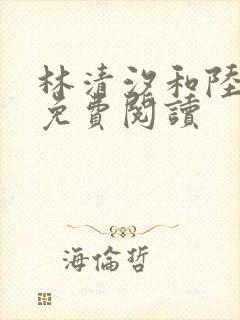 林清汐和陸
免費閱讀
海倫哲